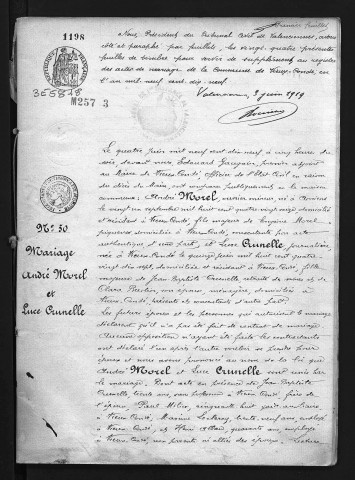 1198
Nous, Président du Tribunal Civil de Valenciennes, avons
coté et paraphé par feuillet, les vingt quatre présents
feuillets de timbre pour servir de supplément au registre
des actes de mariage de la Commune de Vieux-Condé, en
l'an mil neuf cent dix-neuf.
Valenciennes, 3 juin 1919
3E5848
M257 3
Le quatre juin mil neuf cent dix-neuf à cinq heures du
soir, devant nous Edouard
au Maire de Vieux-Condé, officier de l'État Civil en
du Maire, ont comparu publiquement en la maison
commune: André Morel, ouvrier mineur, né à
le septembre mil huit cent quatre vingt domicilié
et résidant à Vieux-Condé, fils majeur de Eugénie Morel,
domiciliée à Vieux-Condé, consentante par acte
authentique d'une part, et Luce Crunelle, journalière,
née à Vieux-Condé le quinze juin mil huit cent quatre
vingt dix sept, domiciliée et résidant à Vieux-Condé, fille
majeure de Jean Baptiste Crunelle, retraité des mines et de
Clara son épouse, ménagère, domiciliés à
Vieux-Condé, présents et consentants d'autre part.
Les futurs époux et les personnes qui autorisent le mariage
déclarent qu'il n'a pas été fait de contrat de mariage.
Aucune opposition n'ayant été faite les contractants
ont déclaré l'un après l'autre vouloir se prendre pour
époux et nous avons prononcé au nom de la loi que
André Morel et Luce Crunelle sont unis par
le mariage. Dont acte en présence de Jean Baptiste
Crunelle, trente ans, à Vieux-Condé, frère de
l'épouse, Paul cinquante huit ans,
à Vieux-Condé, Maxime trente neuf ans, employé
à Vieux-Condé, et Henri quarante ans, employé
à Vieux-Condé, non parents ni alliés des époux. Lecture
N° 30
Mariage
André Morel
et
Luce Crunelle